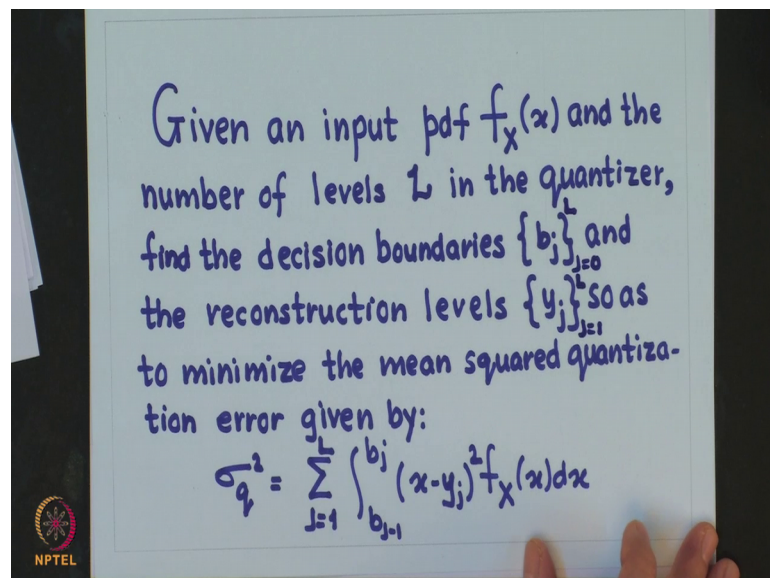 Given an input pdf f_X(x) and the
number of levels L in the quantizer,
find the decision boundaries {b_j}_{j=0}^{L} and
the reconstruction levels {y_j}_{j=1}^{L} so as
to minimize the mean squared quantiza-
tion error given by:
σ_q^2 = ∑_{J=1}^{L} ∫_{b_{j-1}}^{b_j} (x-y_j)^2 f_X(x)dx
NPTEL